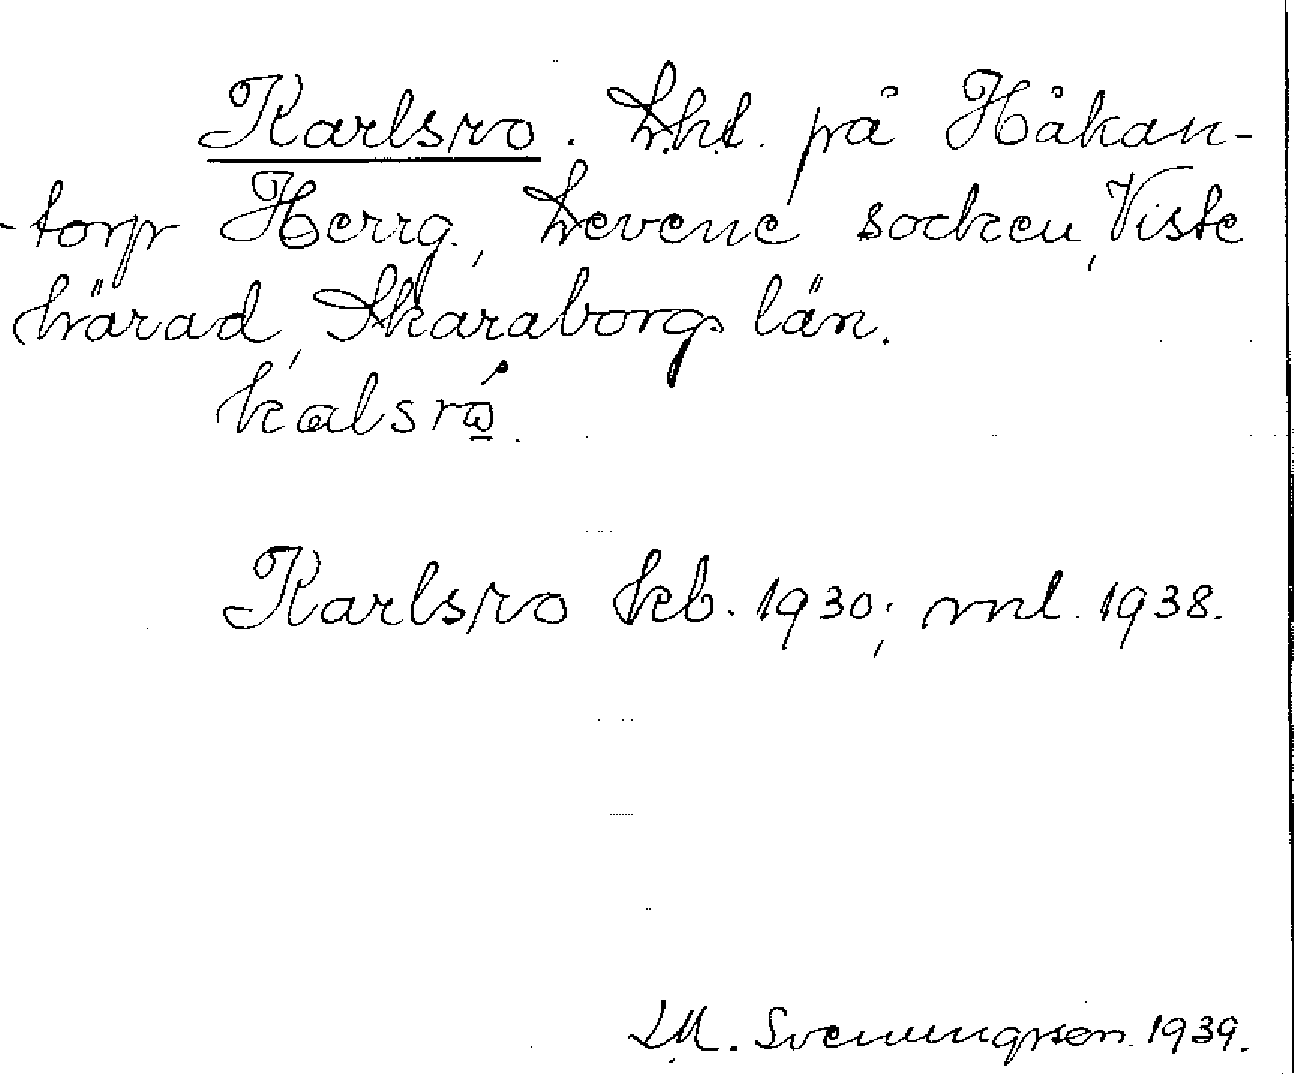 Karlsro. Lht. på Håkan-
-torp Herrg., Levene socken, Viste
härad, Skaraborgs län.
kalsró̲.
Karlsro kb. 1930; ml. 1938.
Svenungsson 1939.